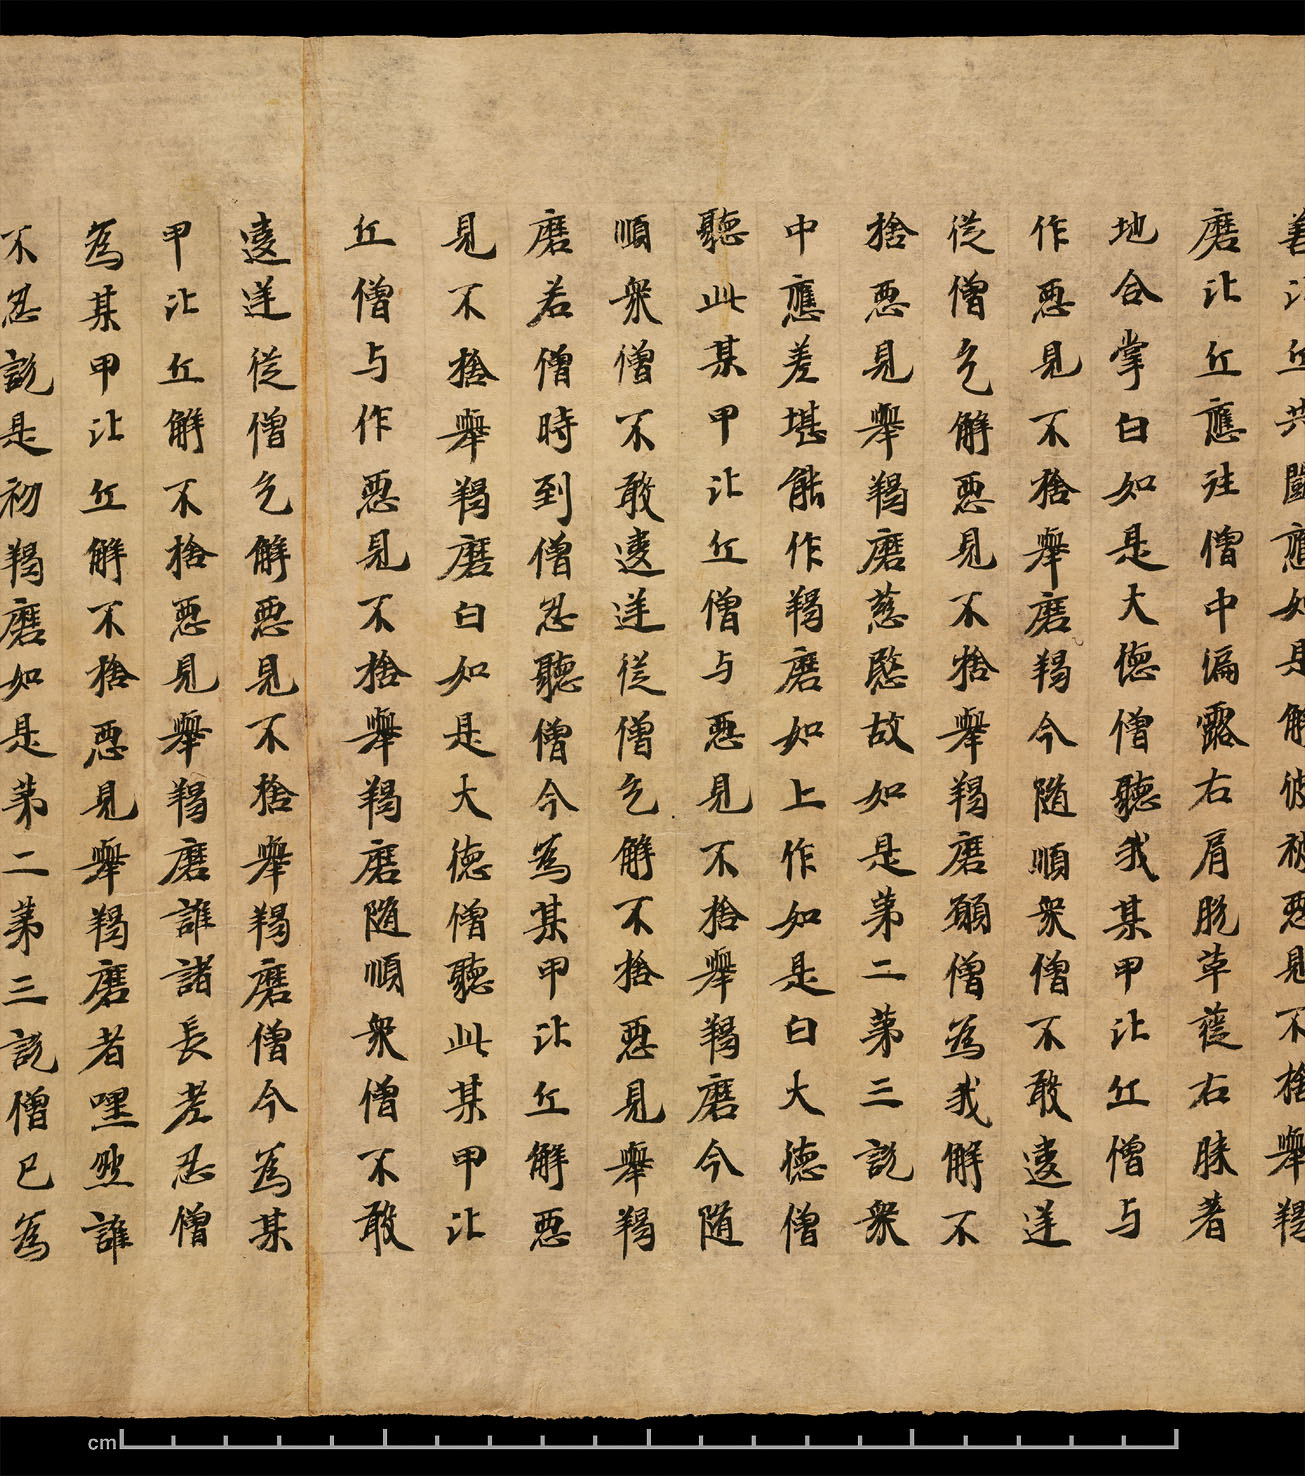 善比丘共鬪應如是解彼被惡見不捨舉羯
磨比丘應往僧中偏露右肩脫草屣右膝著
地合掌白如是大德僧聽我某甲比丘僧与
作惡見不捨舉磨羯今隨順眾僧不敢違逆
從僧乞解惡見不捨舉羯磨願僧為我解不
捨惡見舉羯磨慈愍故如是第二第三說眾
中應差堪能作羯磨如上作如是白大德僧
聽此某甲比丘僧与惡見不捨舉羯磨今隨
順眾僧不敢違逆從僧乞解不捨惡見舉羯
磨若僧時到僧忍聽僧今為某甲比丘解惡
見不捨舉羯磨白如是大德僧聽此某甲比
丘僧与作惡見不捨舉羯磨隨順眾僧不敢
違逆從僧乞解惡見不捨舉羯磨僧今為某
甲比丘解不捨惡見舉羯磨誰諸長老忍僧
為某甲比丘解不捨惡見舉羯磨者嘿然誰
不忍說是初羯磨如是第二第三說僧已為